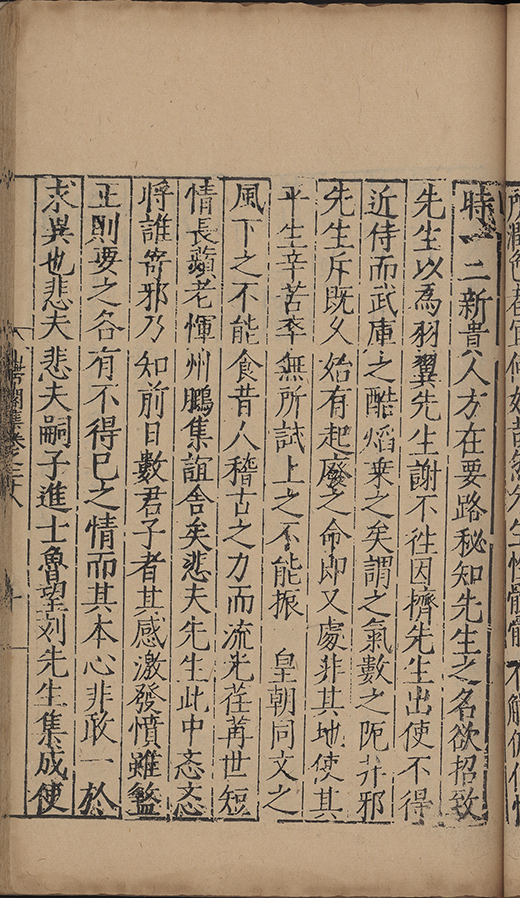 時一二新貴人方在要路秘知先生之名欲招致
先生以為羽翼先生謝不徃因擠先生出使不得
近侍而武庫之酷焰乗之矣謂之氣數之阨并邪
先生斥既乆始有起廢之命即又處非其地使其
平生辛苦卒無所試上之不能振　皇朝同文之
風下之不能食昔人稽古之力而流光荏苒世短
情長蘋老惲州鵬集誼舍矣悲夫先生此中忞忞
将誰寄邪乃知前日數君子者其感激發憤雖盭
正則要之各有不得已之情而其本心非敢一於
求異也悲夫悲夫嗣子進士魯望刻先生集成使
集卷之二十八